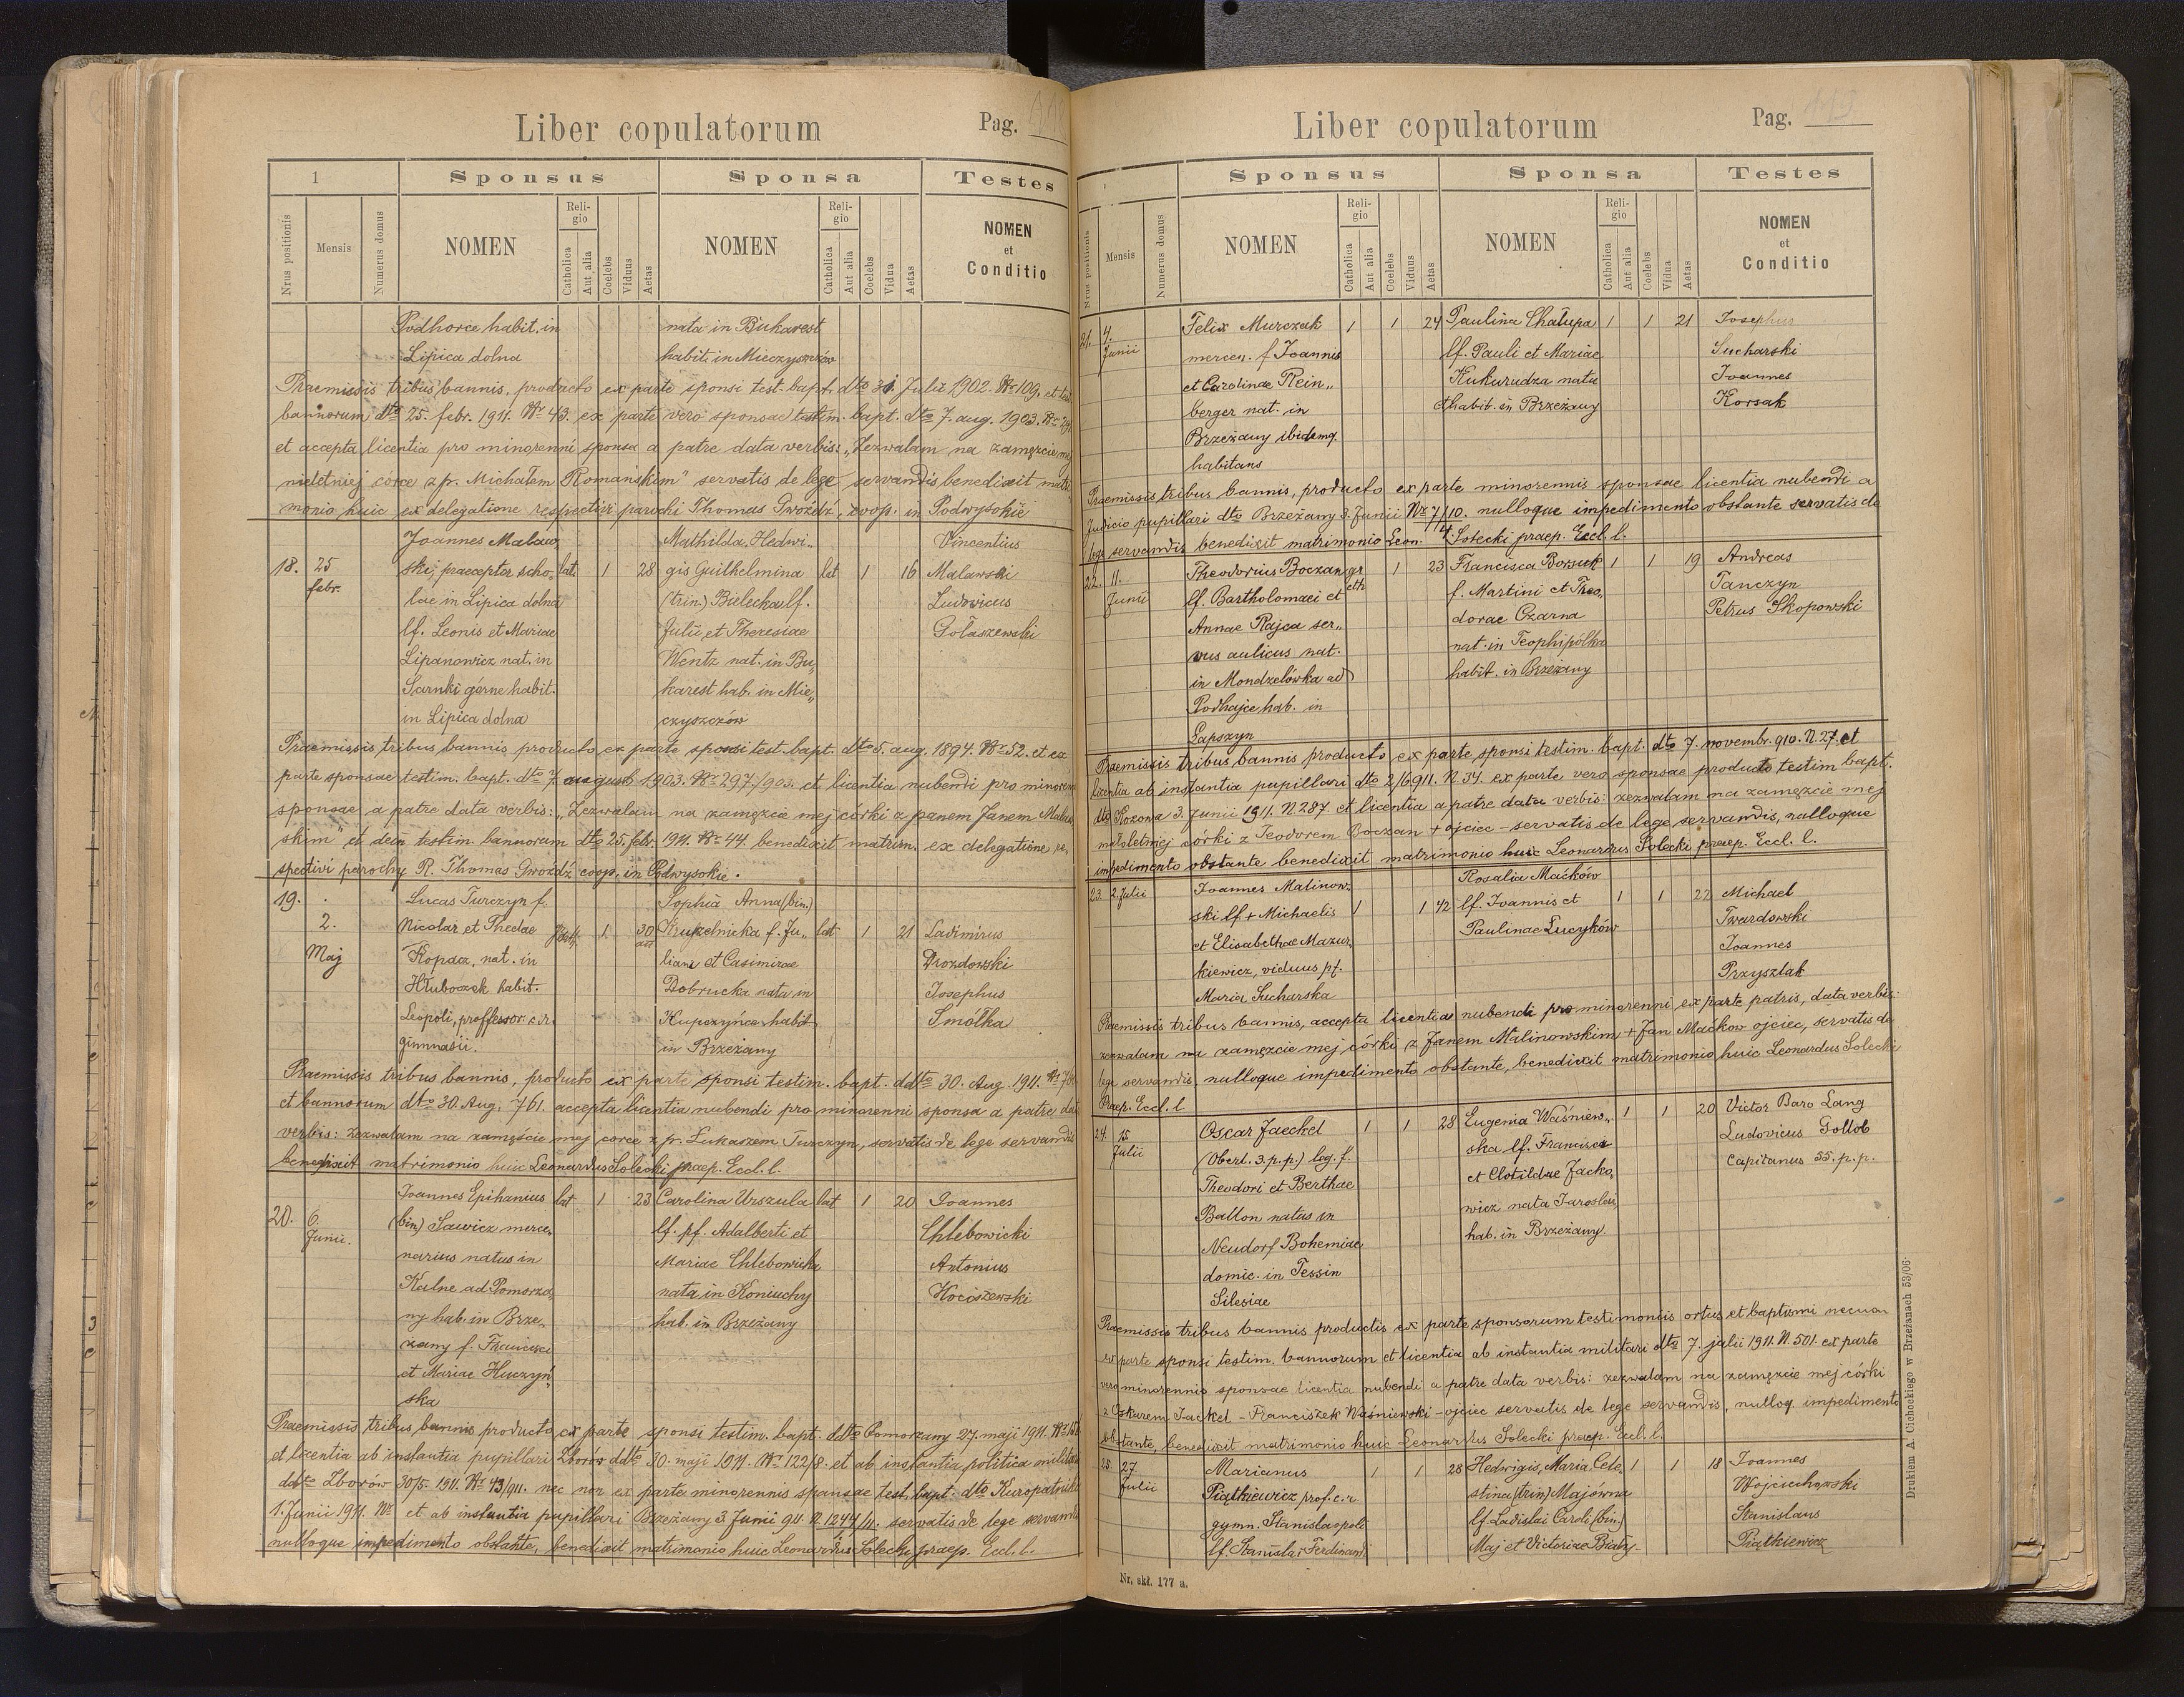 Liber copulatorum
Pag.
1
Sponsus
Sponsa
Testes
Nrus positionis
Mensis
Numerus domus
NOMEN
Religio
Catholica
Aut alia
Coelebs
Viduus
Aetas
NOMEN
Religio
Catholica
Aut alia
Coelebs
Vidua
Aetas
NOMEN
et
Conditio
Podhorce habit. in
Lipica dolna
nata in Bukarest
habit. in Mieczyszczów
Praemissis tribus bannis, producto ex parte sponsi test. bapt. dto 31. Julii 1902. Nr 109, et
bannorum dto 25. febr. 1911. Nr 43. ex parte vero sponsae testim. bapt. dto 7. aug. 1903.
et accepta licentia pro minorenni sponsa a patre data verbis: „Zezwalam na zamęzcie mej
nieletniej córce z p. Michałem Romańskim" servatis de lege servandis benedixit matri
monio huic ex delegatione respectivi parochi Thomas Gwoźdź, coop. in Podwysokie
18. 25
febr.
Joannes Malaw
ski, praeceptor scho
lae in Lipica dolna
lf. Leonis et Mariae
Lipanowicz nat. in
Sarnki górne habit.
in Lipica dolna
lat. 1 28
Mathilda, Hedwi„
gis Guilhelmina
(trin.) Bielecka lf.
Julii et Theresiae
Wentz nat. in Bu„
karest hab. in Mie„
czyszczów
lat 1 16
Vincentius
Malawski
Ludovicus
Gołaszewski
Praemissis tribus bannis producto ex parte sponsi test. bapt. dto 5. aug. 1894. Nr 52. et ex
parte sponsae testim. bapt. dto 7. august 1903. Nr 297./903. et licentia nubendi pro minoren
sponsae, a patre data verbis: „Zezwalam na zamęzcie mej córki z panem Janem Malaw
skim" et dein testim. bannorum dto 25. febr. 1911. Nr 44. benedixit matrim. ex delegatione re
spectivi parochy R. Thomas Gwoźdź coop. in Podwysokie.
19.
2.
Maj
Lucas Turczyn f.
Nicolai et Theclae
Kopacz, nat. in
Hłuboczek habit.
Leopoli, proffessor. c. r.
gimnasii.
1 30
Sophia Anna (bin.)
Krupelnicka f. Ju„
liani et Casimirae
Dobrucka nata in
Kupczyńce habit
in Brzeżany
lat 1 21
Ladimirus
Drozdowski
Josephus
Smółka
Praemissis tribus bannis, producto ex parte sponsi testim. bapt. ddto 30. Aug. 1911.
et bannorum dto 30. Aug. 761. accepta licentia nubendi pro minorenni sponsa a patre, dat
verbis: zezwalam na zamęście mej córce z p. Łukaszem Turczyn, servatis de lege servandis
benedixit matrimonio huic Leonardus Solecki praep. Eccl. l.
20. 6.
Junii.
Joannes Epihanius
(bin) Sawicz merce„
narius natus in
Kalne ad Pomorza„
ny hab. in Brze„
żany f. Francisci
et Mariae Huczyń„
ska
lat 1 23
Carolina Urszula
lf. pf. Adalberti et
Mariae Chlebowicka
nata in Koniuchy
hab. in Brzeżany
lat 1 20
Joannes
Chlebowicki
Antonius
Kociszewski
Praemissis tribus bannis producto ex parte sponsi testim. bapt. ddto Pomorzany 27. maji 1911.
et licentia ab instantia pupillari Zborów ddto 30. maji 1911. Nr 122/8. et ab instantia politica milit
ddto Zborów 30/5. 1911. Nr 43/911. nec non ex parte minorennis sponsae test. bapt. dto Kuropatniki
1. Junii 1911. Nr et ab instantia pupillari Brzeżany 3 Junii 911. N. 1244/11. servatis de lege servandis
nulloque impedimento obstante, benedixit matrimonio huic Leonardus Solecki praep. Eccl. l.
Liber copulatorum
Pag.
Sponsus
Sponsa
Testes
Nrus positionis
Mensis
Numerus domus
NOMEN
Religio
Catholica
Aut alia
Coelebs
Viduus
Aetas
NOMEN
Religio
Catholica
Aut alia
Coelebs
Vidua
Aetas
NOMEN
et
Conditio
21. 4.
Junii
Felix Murczak
mercen. f Joannis
et Carolinae Rein„
berger nat. in
Brzeżany ibidemq.
habitans
1 1 24
Paulina Chałupa
lf. Pauli et Mariae
Kukurudza nata
et habit. in Brzeżany
1 1 21
Josephus
Sucharski
Joannes
Korsak
Praemissis tribus bannis, producto ex parte minorennis sponsae licentia nubendi a
Judicio pupillari dto Brzeżany 3. Junii Nr 7/10. nulloque impedimento obstante servatis de
lege servandis benedixit matrimonio Leon. Solecki praep. Eccl. l.
22. 11.
Junii
Theodorius Boczan
lf. Bartholomaei et
Annae Rajca ser„
vus aulicus nat.
in Mondzelówka ad
Podhajce hab. in
Łapszyn
gr
cth
1 23
Francisca Borsuk
f. Martini et Theo„
dorae Czarna
nat. in Teophipólka
habit. in Brzeżany
1 1 19
Andreas
Tanczyn
Petrus Skopowski
Praemissis tribus bannis producto ex parte sponsi testim. bapt. dto 7. novembr. 910. N. 27. et
licentia ab instantia pupillari dto 2/6 911. N. 34. ex parte vero sponsae producto testim bapt.
dto Kozona 3. Junii 1911. N 287. et licentia a patre data verbis: zezwalam na zamęzcie mej
małoletniej córki z Teodorem Boczan + ojciec - servatis de lege servandis, nulloque
impedimento obstante benedixit matrimonio huic Leonardus Solecki praep. Eccl. l.
23. 2. Julii
Joannes Malinow„
ski lf + Michaelis
et Elisabethae Mazur„
kiewicz, viduus pf.
Maria Sucharska
1 1 42
Rosalia Maćków
lf. Joannis et
Paulinae Łucyków
1 1 22
Michael
Twardowski
Joannes
Przyszlak
Praemissis tribus bannis, accepta licentiae nubendi pro minorenni, ex parte patris, data verbis:
zezwalam na zamęzcie mej córki z Janem Malinowskim + Jan Maćków ojciec, servatis de
lege servandis, nulloque impedimento obstante, benedixit matrimonio huic Leonardus Solecki
Praep. Eccl. l.
24. 15
Julii
Oscar Jaeckel
(Oberl. 3. p. p.) leg. f.
Theodori et Berthae
Ballon natus in
Neudorf Bohemiae
domic. in Tessin
Silesiae
1 1 28
Eugenia Waśniew„
ska lf. Francisci
et Clotildae Jacko„
wicz nata Jaroslau,
hab. in Brzeżany.
1 1 20
Victor Baro Lang
Ludovicus Gollob
Capitanus 55. p. p.
Praemissis tribus bannis productis ex parte sponsorum testimoniis ortus et baptismi necnon
ex parte sponsi testim. bannorum et licentia ab instantia militari dto 7. julii 1911. N. 501. ex parte
vero minorennis sponsae licentia nubendi a patre data verbis: zezwalam na zamęzcie mej córki
z Oskarem Jackel - Franciszek Waśniewski - ojciec servatis de lege servandis, nulloq. impedimento
obstante, benedixit matrimonio huic Leonardus Solecki praep. Eccl. l.
25. 27.
Julii
Marianus
Piątkiewicz prof. c. r.
gymn. Stanislaopoli
lf. Stanislai Ferdinand
1 1 28
Hedwigis, Maria, Cele„
stina (trin) Majowna
lf. Ladislai Caroli (bin.)
Maj et Victoriae Biały
1 1 18
Joannes
Wojciechowski
Stanislaus
Piątkiewicz
Nr. skł. 177 a.
Drukiem A. Cichockiego w Brzeżanach 53/06.